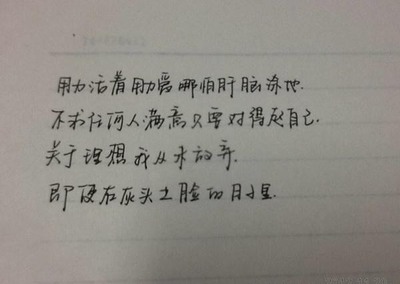 用力活着用力爱哪怕肝脑涂地.
不求任何人满意只要对得起自己.
关于理想我从未放弃.
即便在灰头土脸的日子里.